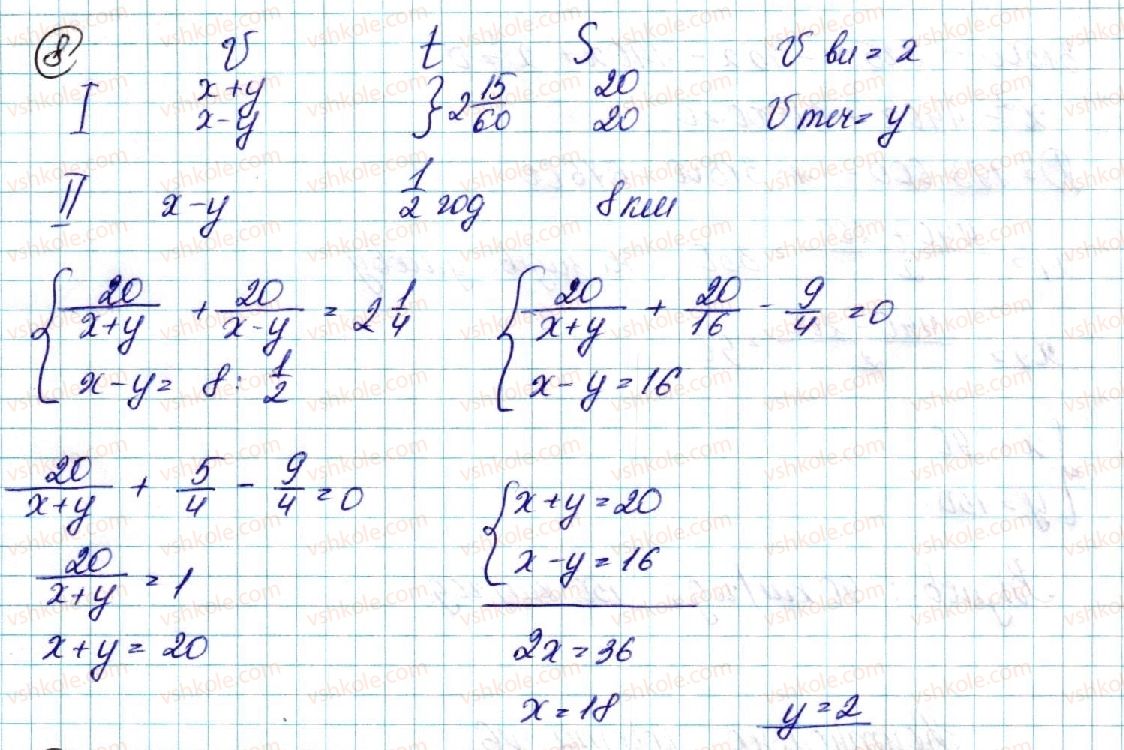 8 V t S V вл = x
I x+y } 2 15/60 20
x-y 20 V теч = y
II x-y 1/2 год 8 км
{ 20/(x+y) + 20/(x-y) = 2 1/4
x-y = 8 : 1/2
{ 20/(x+y) + 20/16 - 9/4 = 0
x-y = 16
20/(x+y) + 5/4 - 9/4 = 0
20/(x+y) = 1
x+y = 20
{ x+y = 20
x-y = 16
2x = 36
x = 18 y = 2
vshkole.com